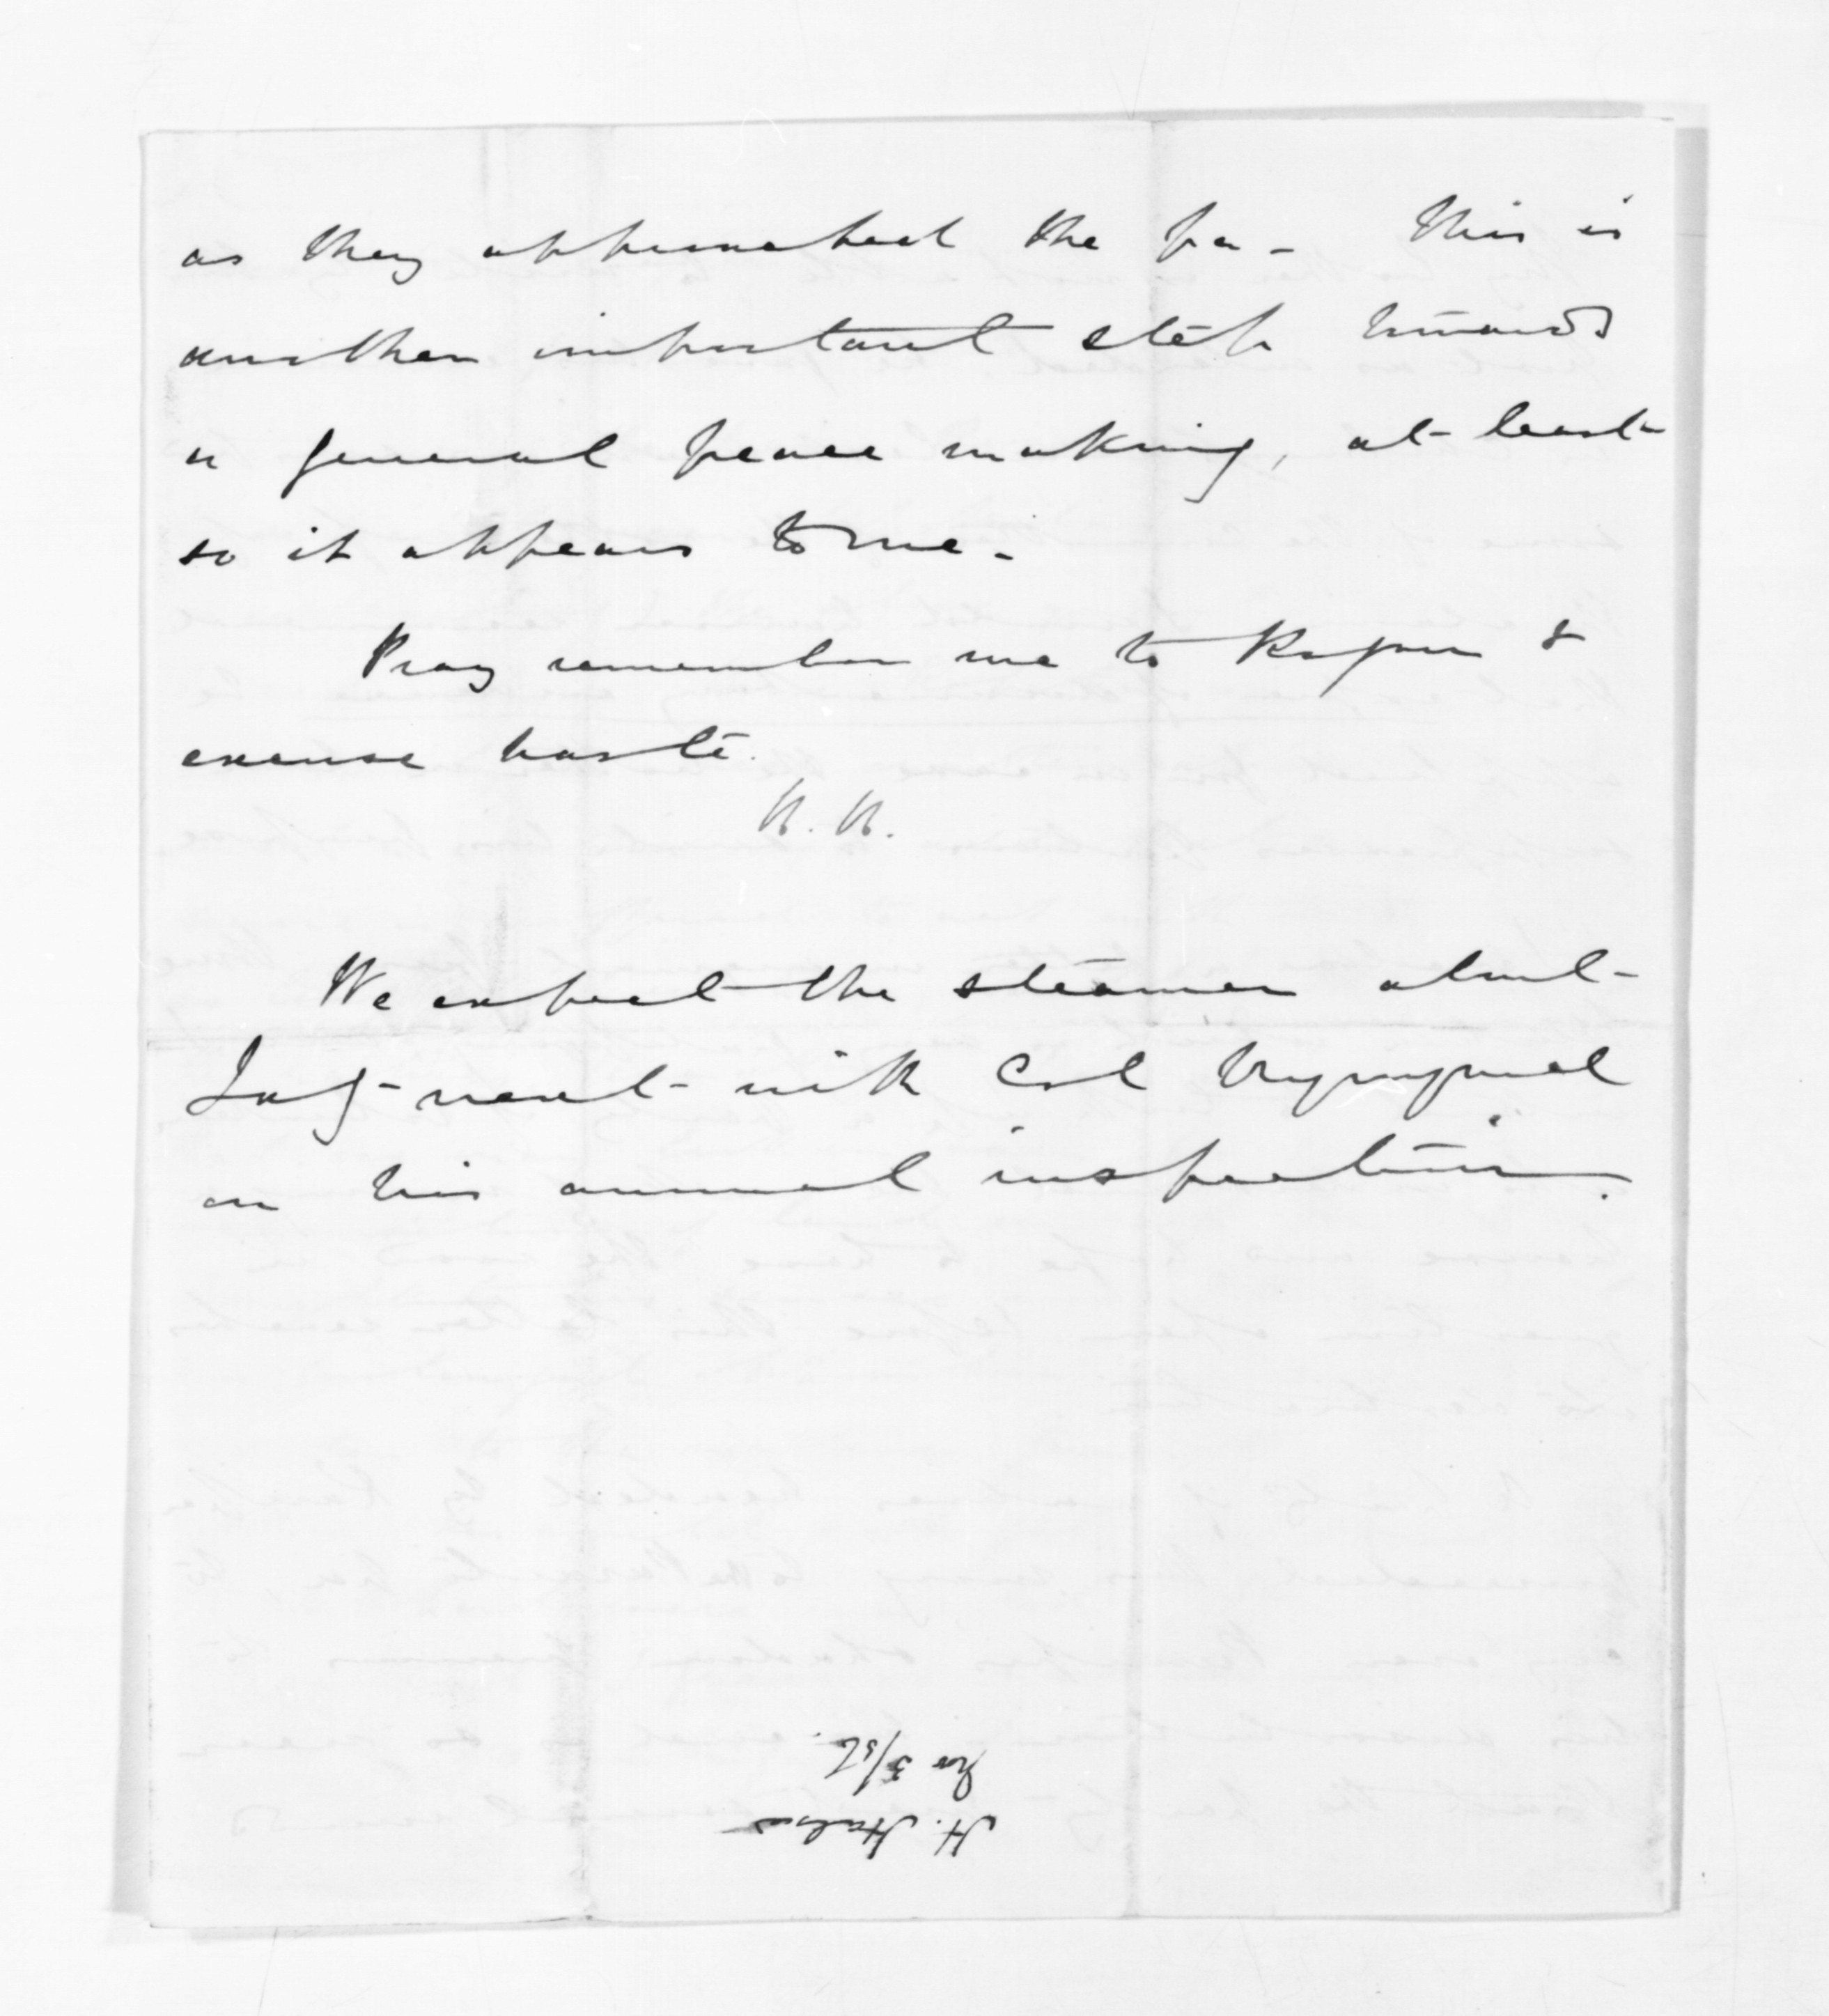 as they approached the pa - This is
another important step towards
a general peace making, at least
so it appears to me -
Pray remember me to Rogan &
excuse haste.
H. H.
We expect the steamer about
Saty next with Col Wynyard
on his annual inspection.
H. Halse
Nov 5/52.